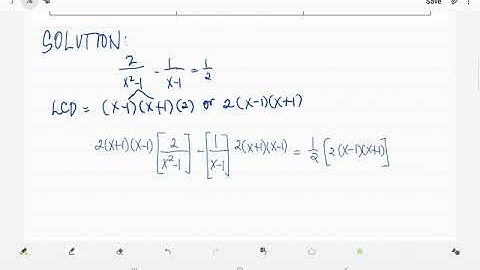 SOLUTION:
2/(x²-1) - 1/(x-1) = 1/2
LCD = (x-1)(x+1)(2) or 2(x-1)(x+1)
2(x+1)(x-1) [2/(x²-1)] - [1/(x-1)] 2(x+1)(x-1) = 1/2 [2(x-1)(x+1)]